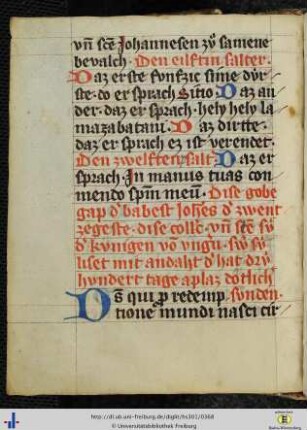 vn̄ scē Johannesen zů samene
bevalch. Den eilftin salter.
Daz erste funfzic sine dur
ste. do er sprach Sitio. Daz an
der. daz er sprach. hely hely la
mazabatani. Daz dirtte.
daz er sprach ez ist verendet.
Den zwelften salt. Daz er
sprach. In manus tuas con
mendo spm̄ meū. Dise gobe
gap d' babest Johēs d' zwent
zegeste. dise collc̄. vn̄ scē
d' kunigen vō vngn. Sw' sy
liset mit andaht d' hat dry
hundert tage aplaz dotlich'
Ds̄ qui p redemp- sunden.
tione mundi nasci cir
http://dl.ub.uni-freiburg.de/diglit/hs301/0368
© Universitätsbibliothek Freiburg
Baden-Württemberg